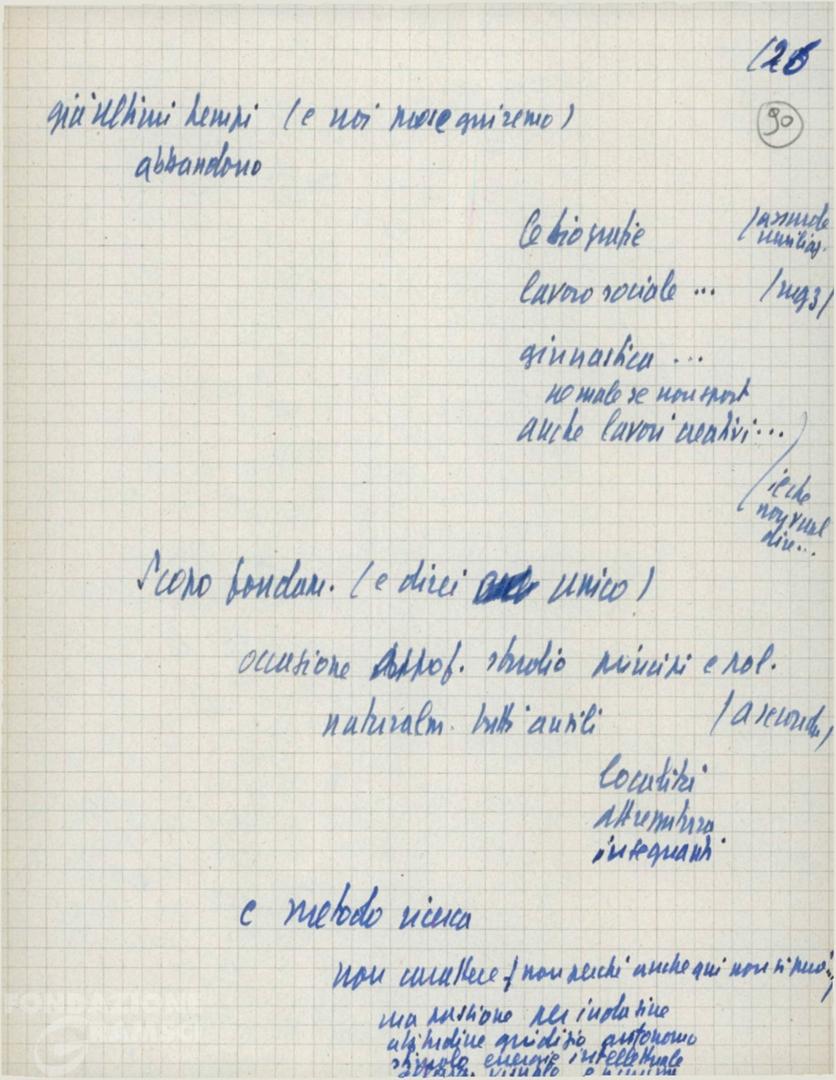 (26
90
già ultimi tempi (e noi proseguiremo)
abbandono
le biografie (assurde
lavoro sociale ... (mg3)
ginnastica ...
no male se non sport
anche lavori creativi ...)
(il che
non vuol
dire...
Scopo fondam. (e direi unico)
occasione approf. studio principi e pol.
naturalm. tutti ausili (a seconda)
località
attrezzatura
insegnanti
e metodo ricerca
non carattere (non perché anche qui non si può...)
ma passione per indagine
abitudine giudizio autonomo
stimolo energie intellettuale
FONDAZIONE
GRAMSCI